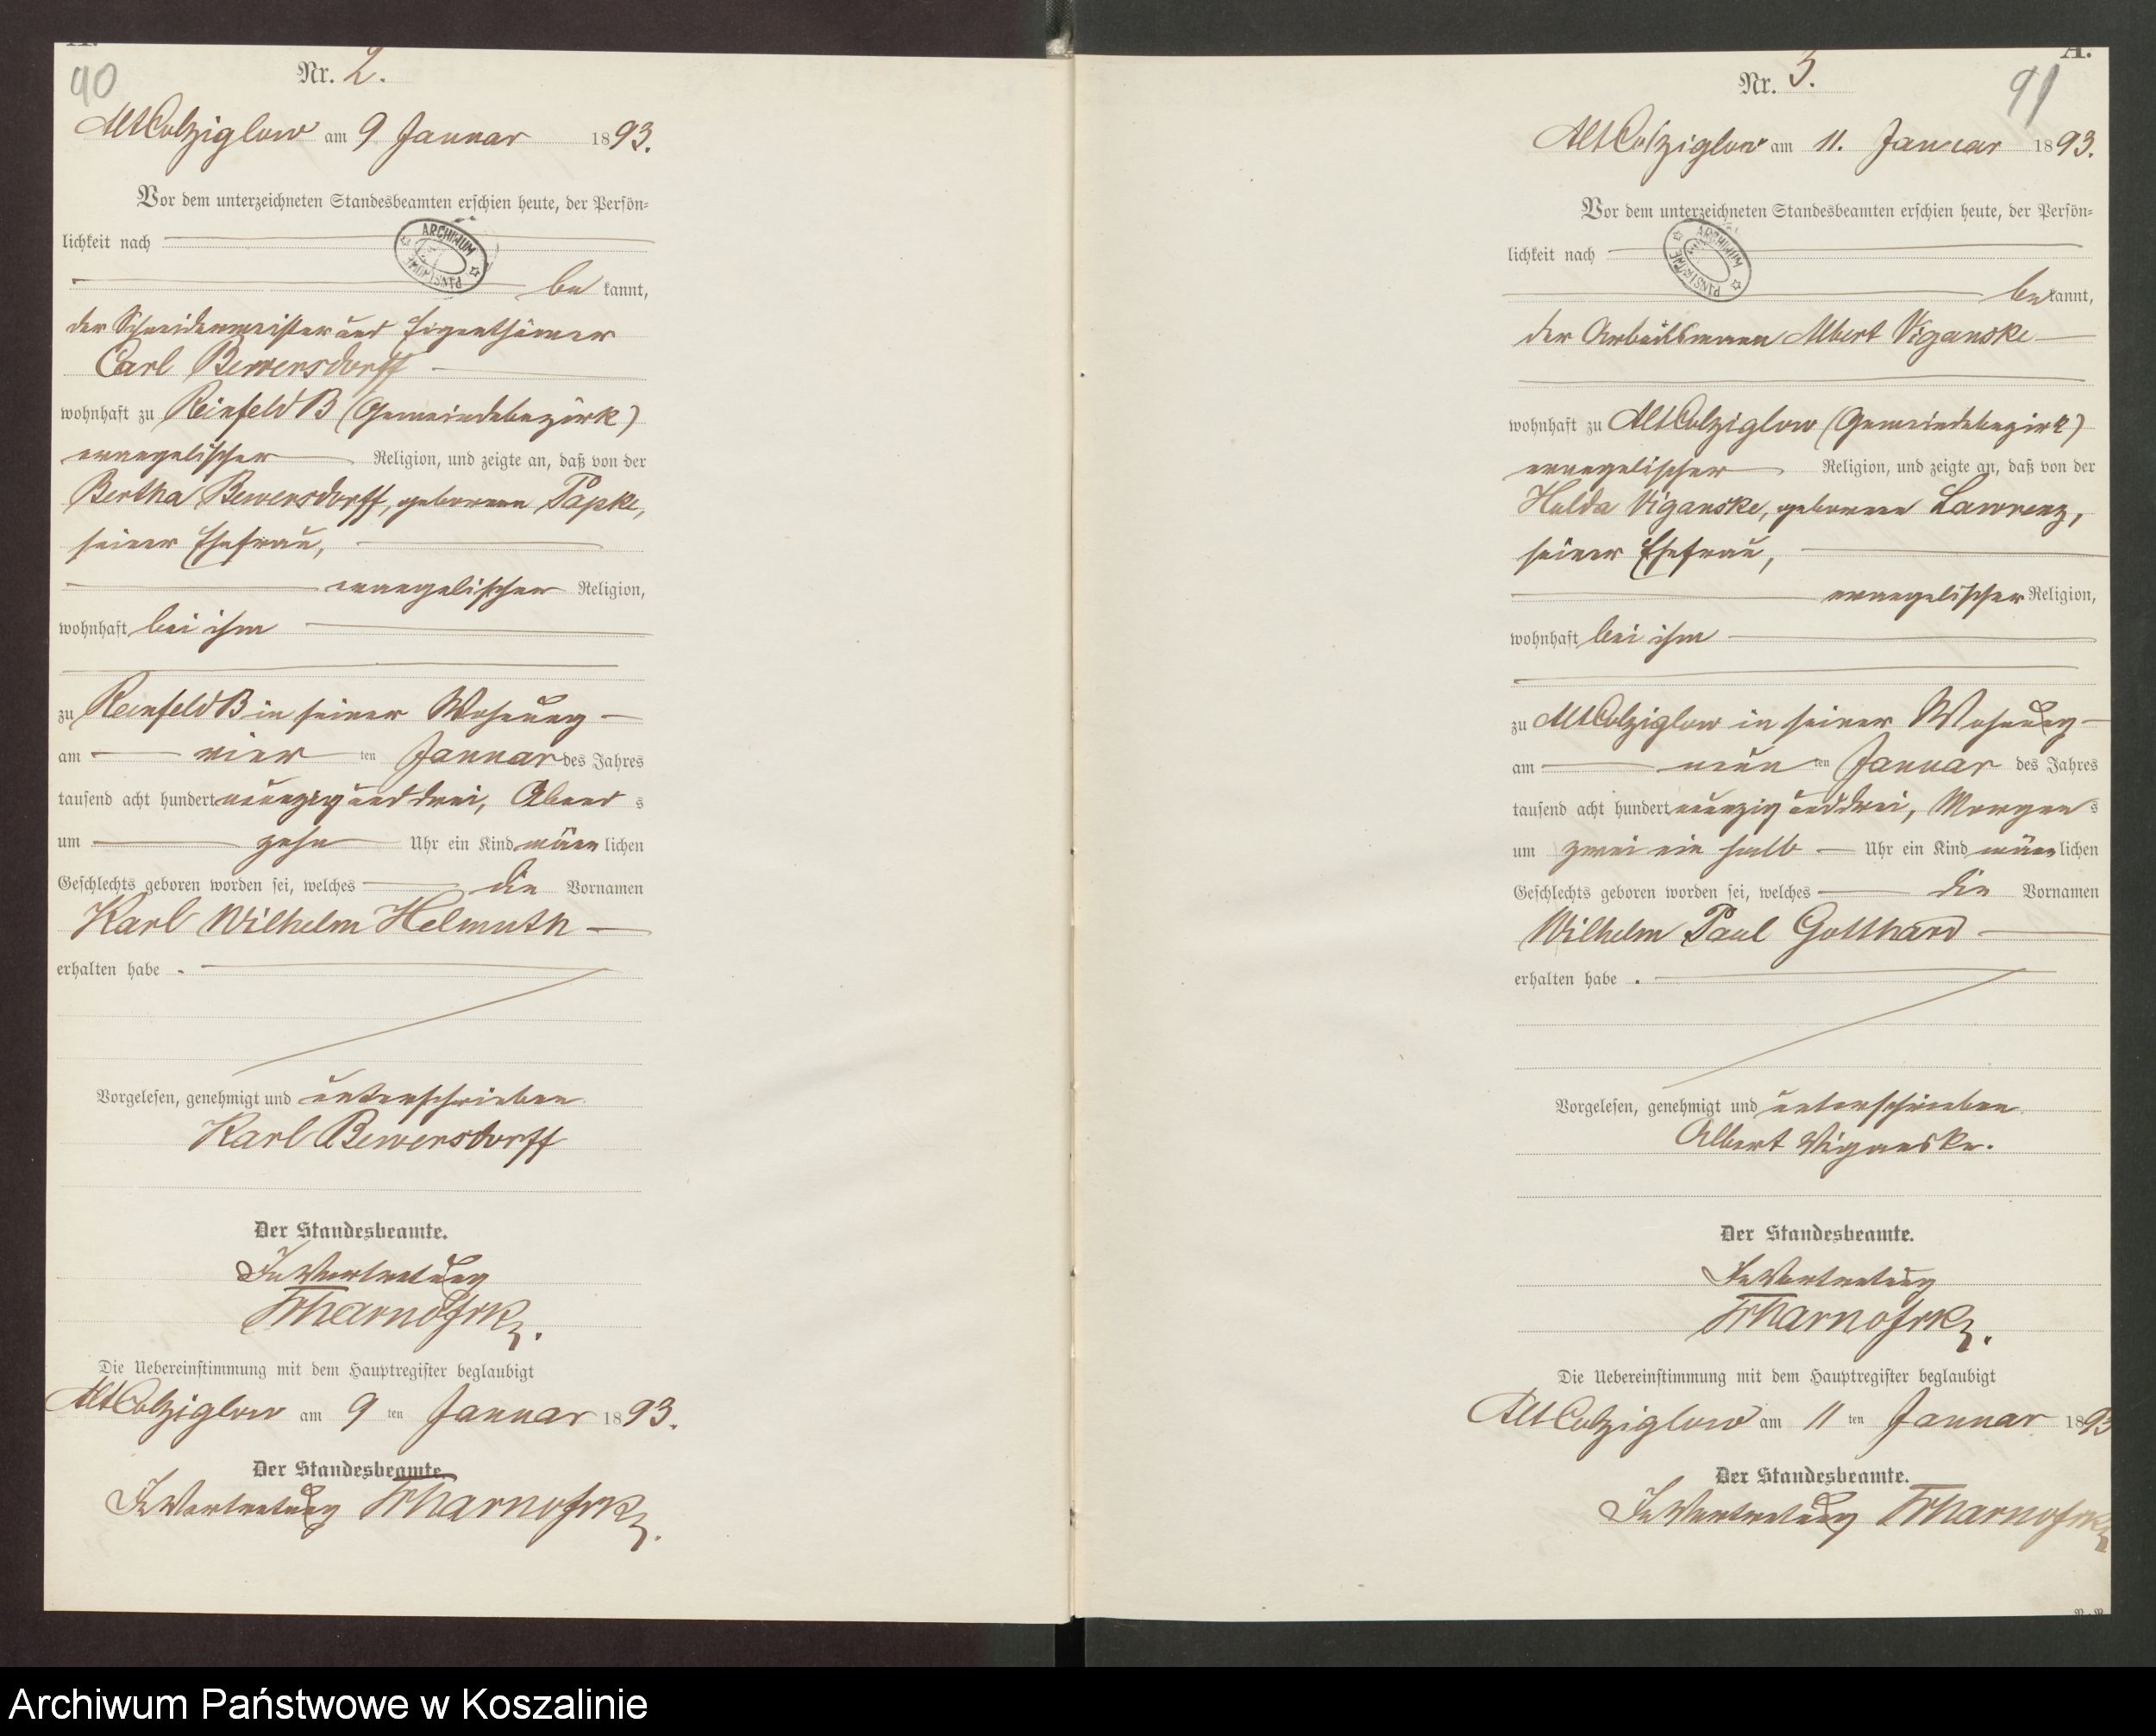 A.
90
Nr. 2.
AltColziglow am 9 Januar 1893.
Vor dem unterzeichneten Standesbeamten erschien heute, der Persön=
lichkeit nach
be kannt,
der Schneidermeister und Eigenthümer
Carl Bewersdorff
wohnhaft zu Reinfeld B (Gemeindebezirk)
evangelischer Religion, und zeigte an, daß von der
Bertha Bewersdorff, geborenen Papke,
seiner Ehefrau,
evangelischer Religion,
wohnhaft bei ihm
zu Reinfeld B in seiner Wohnung
am vier ten Januar des Jahres
tausend acht hundert neunzig und drei, Abend s
um zehn Uhr ein Kind männ lichen
Geschlechts geboren worden sei, welches die Vornamen
Karl Wilhelm Helmuth
erhalten habe .
Vorgelesen, genehmigt und unterschrieben
Karl Bewersdorff
Der Standesbeamte.
In Vertretung
Die Uebereinstimmung mit dem Hauptregister beglaubigt
AltColziglow am 9 ten Januar 1893.
Der Standesbeamte.
In Vertretung
ARCHIWUM
A.
91
Nr. 3.
AltColziglow am 11. Januar 1893.
Vor dem unterzeichneten Standesbeamten erschien heute, der Persön=
lichkeit nach
be kannt,
der Arbeitsmann Albert Viganske
wohnhaft zu AltColziglow (Gemeindebezirk)
evangelischer Religion, und zeigte an, daß von der
Hulda Viganske, geborenen Lawrenz,
seiner Ehefrau,
evangelischer Religion,
wohnhaft bei ihm
zu AltColziglow in seiner Wohnung
am neun ten Januar des Jahres
tausend acht hundert neunzig und drei, Morgen s
um zwei ein halb Uhr ein Kind männ lichen
Geschlechts geboren worden sei, welches die Vornamen
Wilhelm Paul Gotthard
erhalten habe .
Vorgelesen, genehmigt und unterschrieben
Albert Viganske.
Der Standesbeamte.
In Vertretung
Die Uebereinstimmung mit dem Hauptregister beglaubigt
AltColziglow am 11 ten Januar 1893
Der Standesbeamte.
In Vertretung
ARCHIWUM
Archiwum Państwowe w Koszalinie